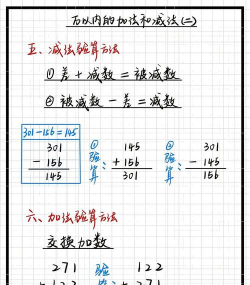 万以内的加法和减法(二)
五、减法验算方法
①差 + 减数 = 被减数
②被减数 - 差 = 减数
301-156=145
301
- 156
145
①验算:
145
+ 156
301
②验算:
301
- 145
156
六、加法验算方法
交换加数
271
验
122